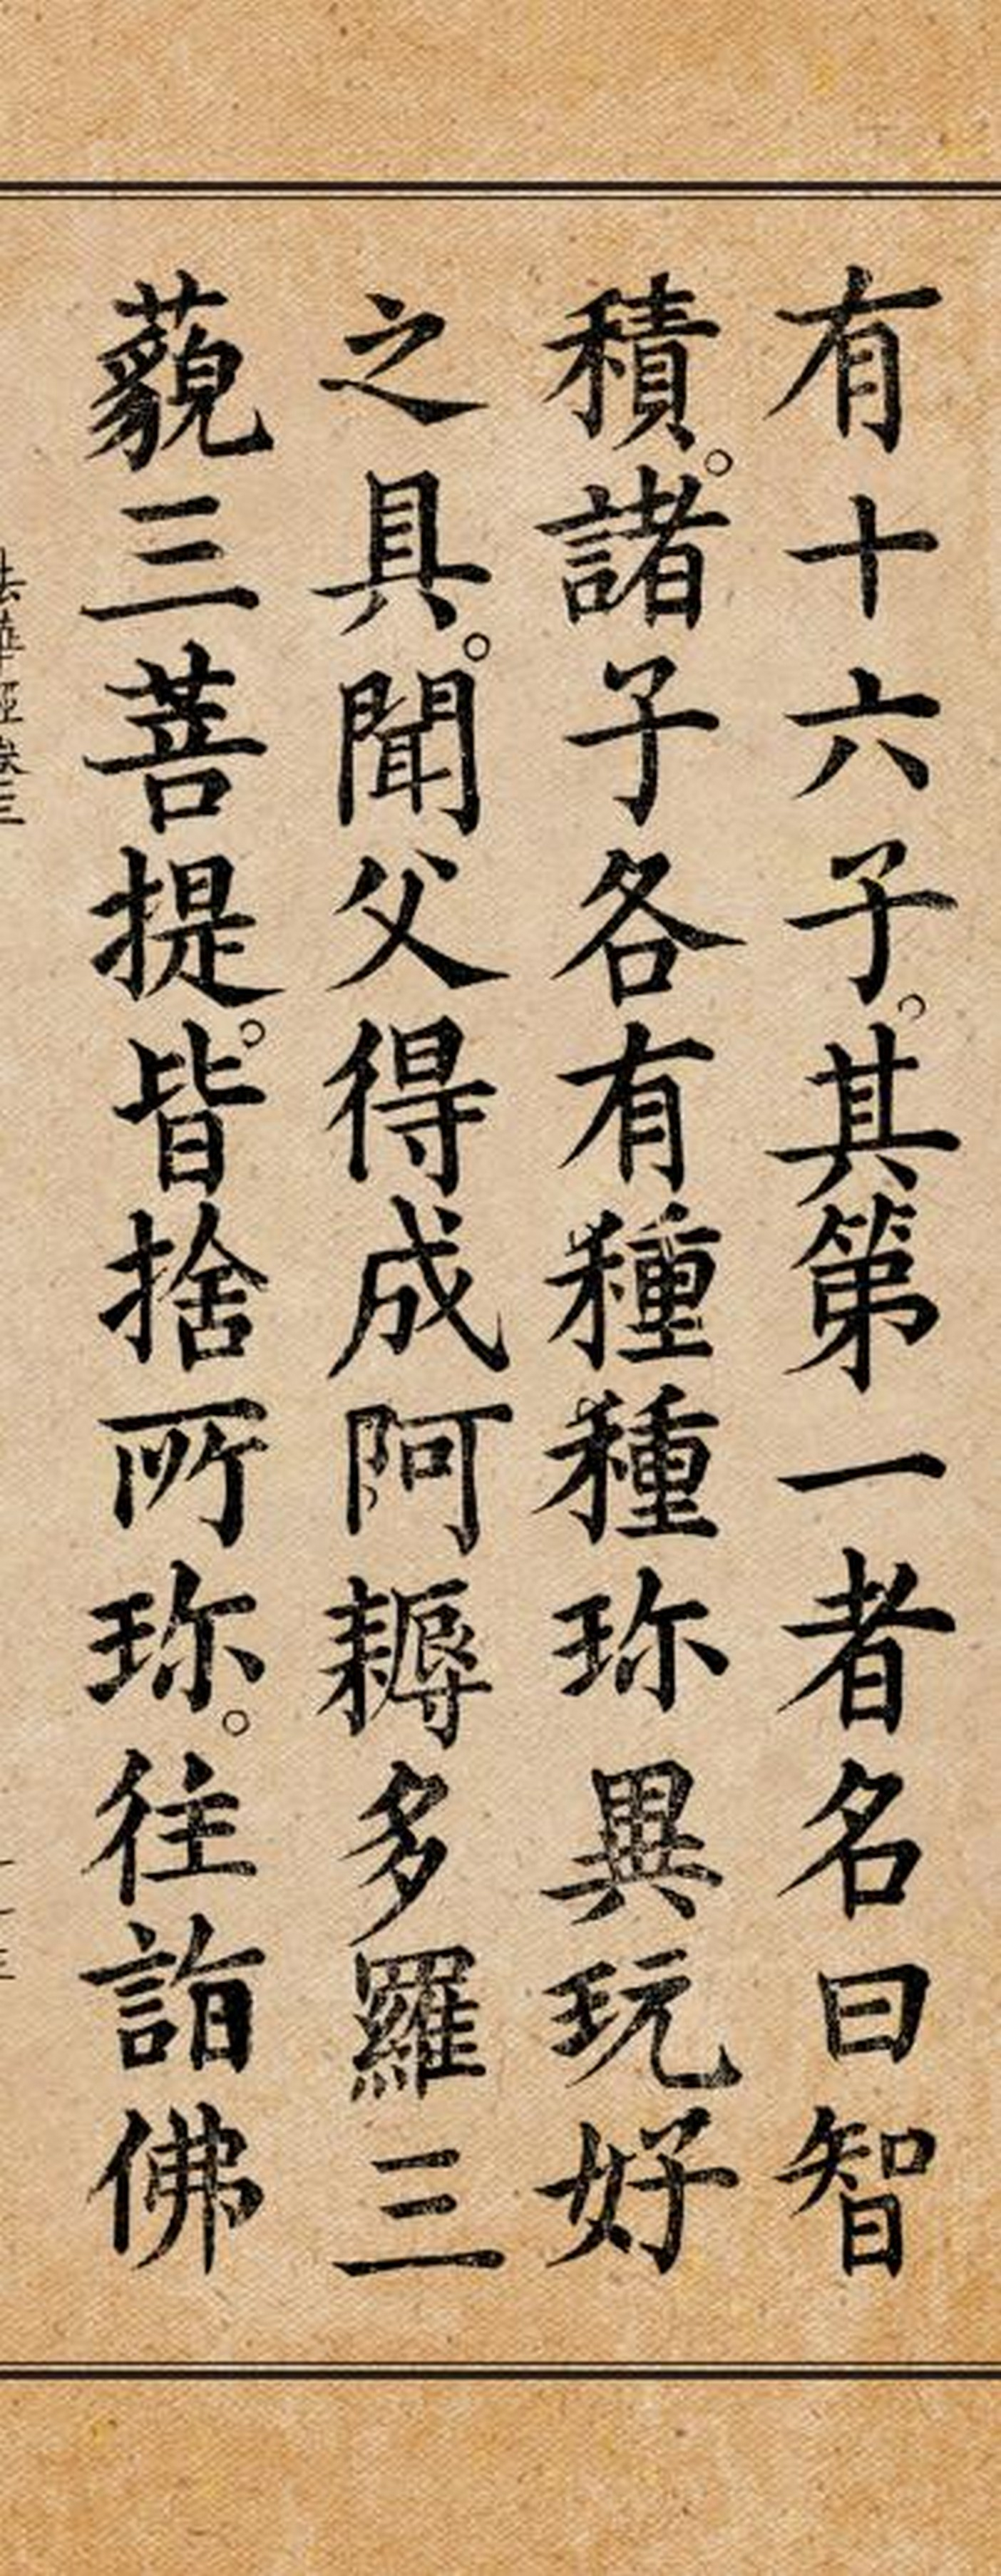 有十六子。其第一者名曰智
積。諸子各有種種珎異玩好
之具。聞父得成阿耨多羅三
藐三菩提。皆捨所珎。往詣佛
法華經卷三